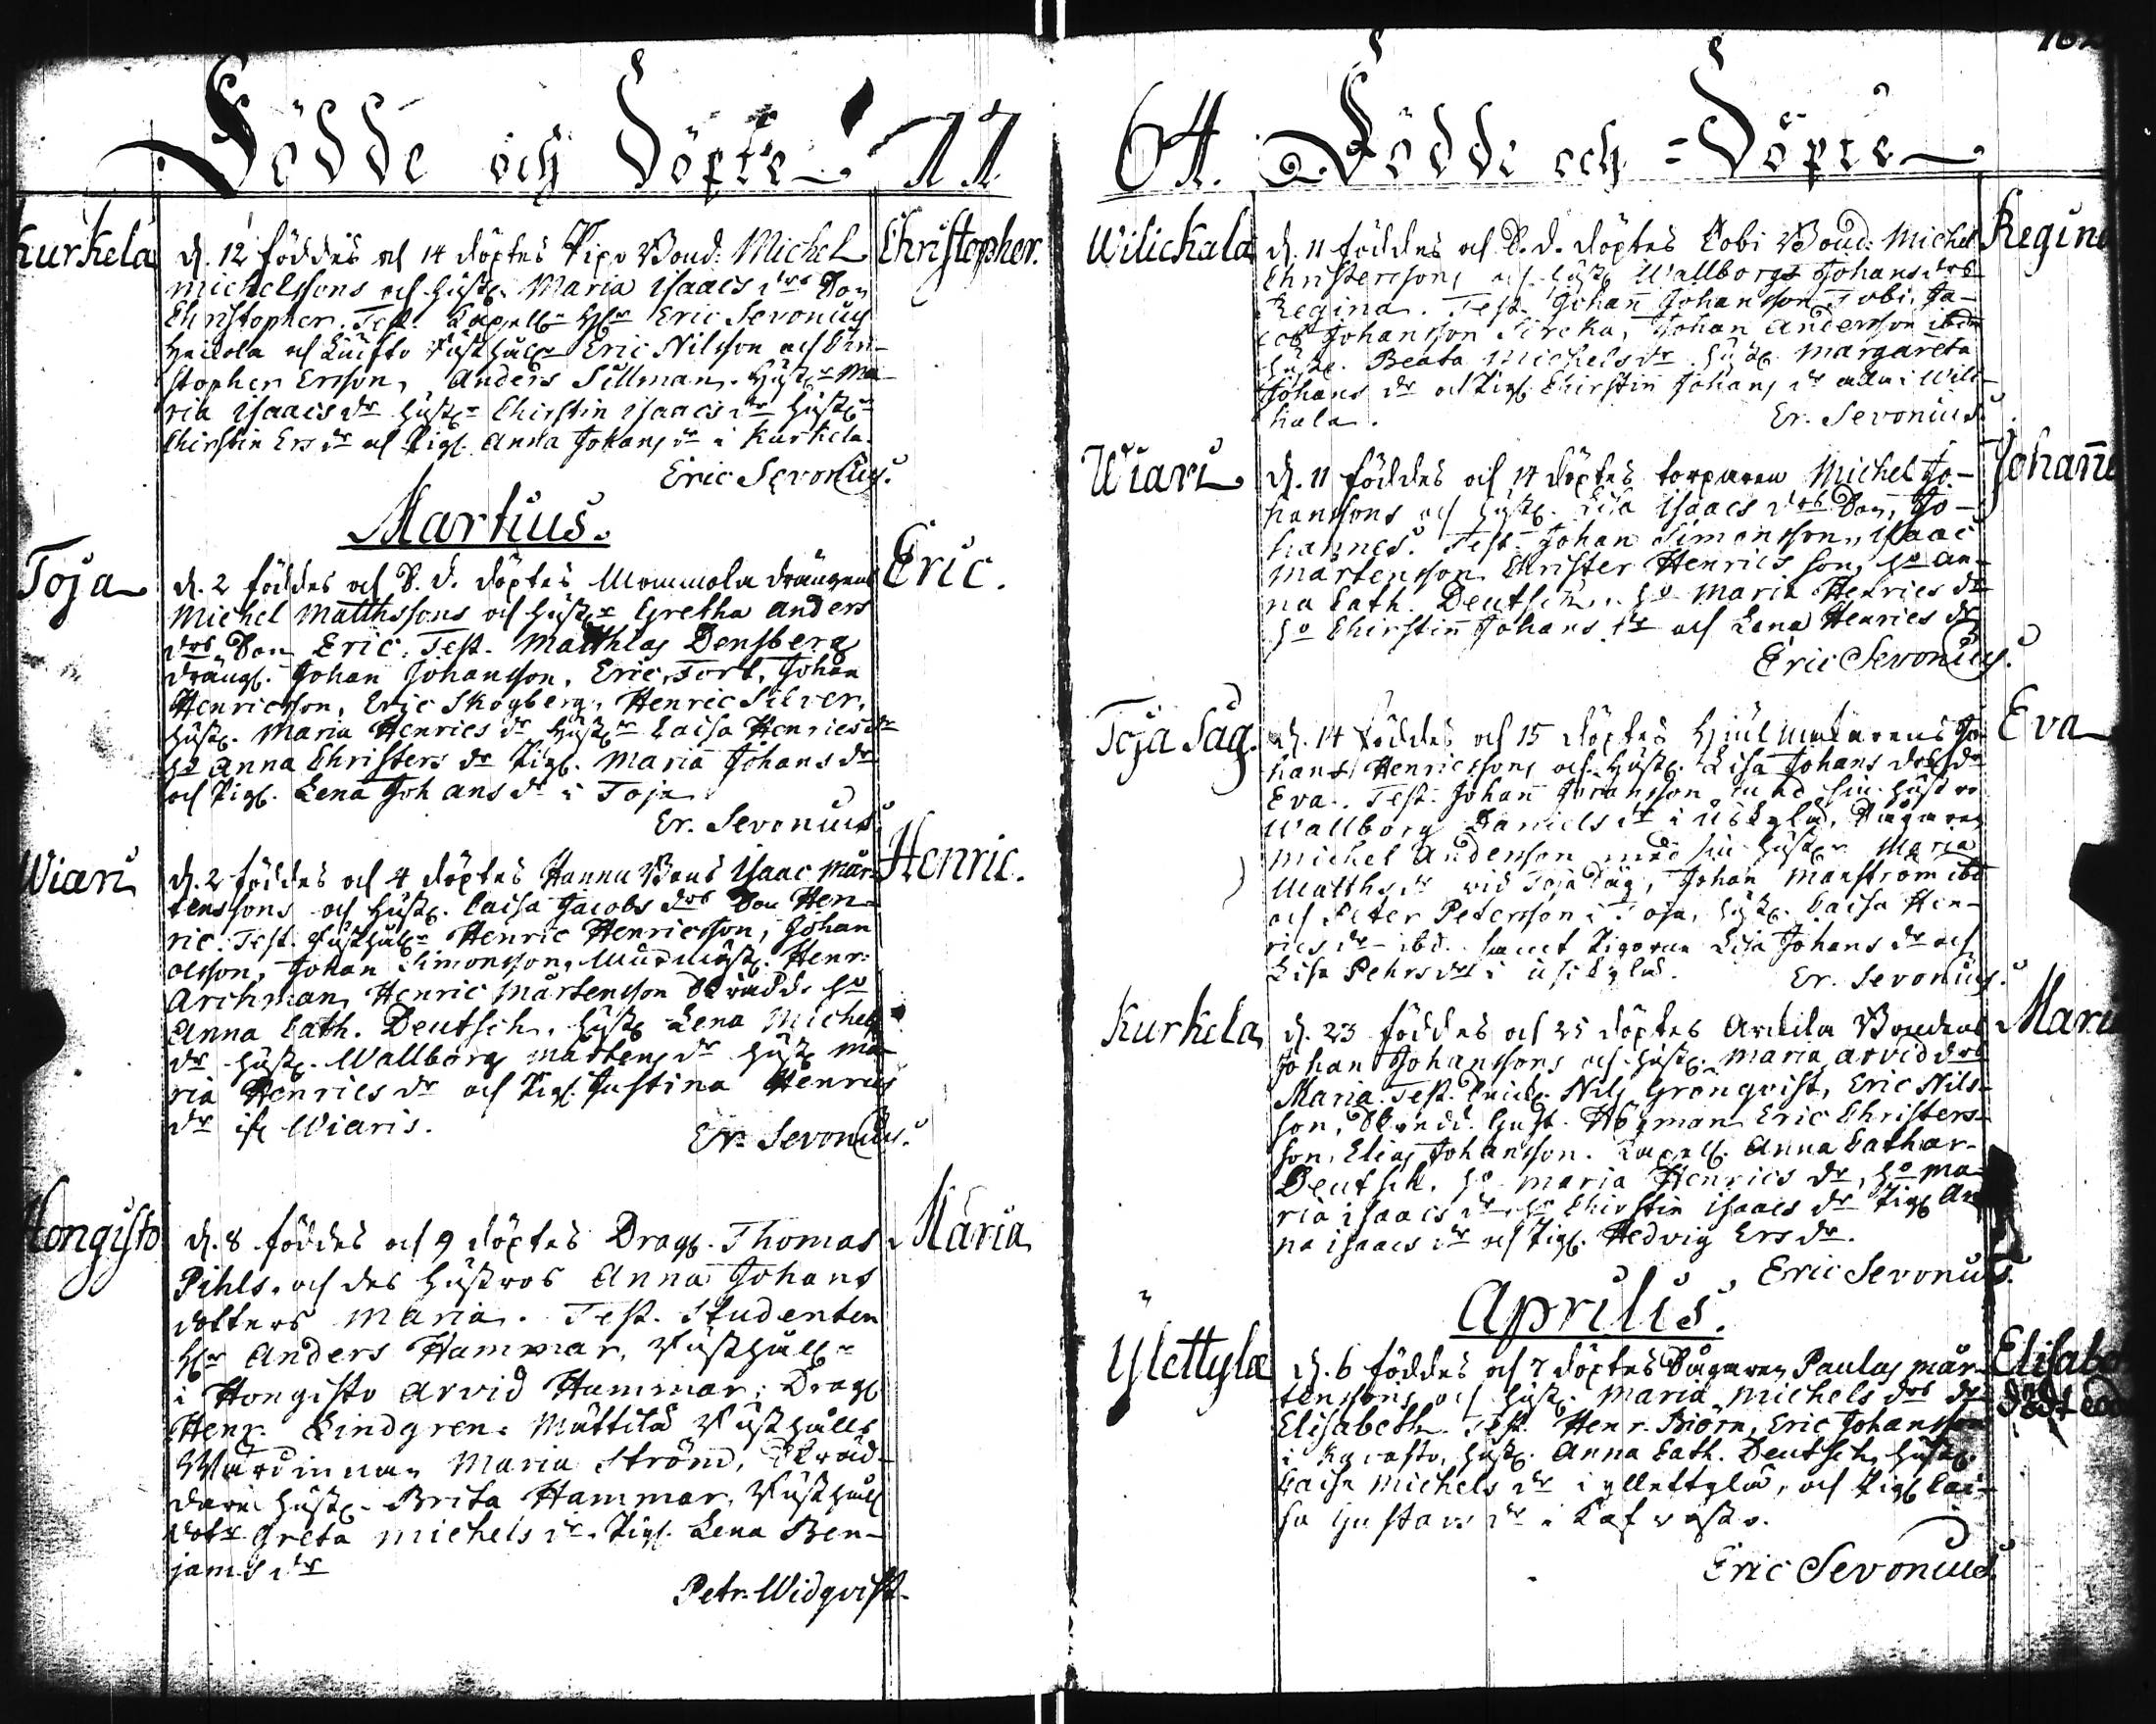 Födde och Döpte 17
Kurkela
d. 12 föddes och 14 döptes Bond. Michel
Michelssons och hustr. Maria Isaacs drs Son
Christopher. Test. Capell. Hr Eric Sevonius
och Eric Nilsson och Chri-
stopher Ersson, Anders Sillman, Hustr. Ma-
ria Isaacs dr Hustr. Chirstin Isaacs dr Hustr.
Chirstin Ers dr och Pig. Anna Johans dr i Kurkela.
Eric Sevonius.
Christopher.
Martius.
Toja
d. 2 föddes och döptes Mommola drängens
Michel Matthssons och Hustr. Gretha Anders
drs Son Eric. Test. Matthias Densberg
dräng. Johan Johansson, Eric Fort, Johan
Henricsson, Eric Skogberg, Henric Silver,
Hustr. Maria Henrics dr Hustr. Caisa Henrics dr
Ho Anna Christers dr Pig. Maria Johans dr
och Pig. Lena Johans dr i Toja
Er. Sevonius.
Eric.
Wiari
d. 2 föddes och 4 döptes Hannu Bond Isaac Mår-
tenssons och Hustr. Caisa Jacobs drs Son Hen-
ric. Test. Henric Henricsson, Johan
Olsson, Johan Simonsson, Henr.
Archman, Henric Mårtensson Ho
Anna Cath. Deutsch, Hustr. Lena Michels
dr Hustr. Wallborg Mårtens dr Hustr. Ma-
ria Henrics dr och Pig. Justina Henrics
dr if. Wiaris.
Er. Sevonius.
Henric.
Hongisto
d. 8 föddes och 9 döptes Drag. Thomas
Pihls, och des Hustros Anna Johans
dotters Maria. Test. Studenten
Hr Anders Hammar, Rusthåll.
i Hongisto Arvid Hammar, Drag.
Henr. Lindgren. Mattila Rusthålls
Wärdinnan Maria Ström, Skräd-
dare Hustr. Brita Hammar, Rusthåll.
dotr Greta Michels dr. Pig. Lena Ben-
jams dr
Petr. Widqvist.
Maria
64. Födde och Döpte
Wilickala
d. 11 föddes och döptes Tobi Bond. Michel
Christerssons och Hustr. Wallborgs Johans drs
Regina. Test. Johan Johansson Tobi, Ja-
cob Johansson Sircka, Johan Andersson ibdm
Hustr. Beata Michels dr Hustr. Margareta
Johans dr och Pig. Chirstin Johans dr alla i Wili-
kala.
Er. Sevonius.
Regina
Wiari
d. 11 föddes och 14 döptes torparen Michel Jo-
hanssons och Hustr. Lisa Isaacs drs Son, Jo-
hannes. Test. Johan Simonsson, Isaac
Mårtensson, Christer Henrics son, Ho An-
na Cath. Deutsch, Ho Maria Henrics dr
Ho Chirstin Johans dr och Lena Henrics dr
Eric Sevonius.
Johanne
Toja Såg.
d. 14 föddes och 15 döptes Jo-
hans Henricssons och Hustr. Lisa Johans drs dr
Eva. Test. Johan Johansson med sin hustro
Wallborg Daniels dr i Uskyla, Sågaren
Michel Andersson med sin Hustr. Maria
Matths dr vid Toja Såg, Johan Manström ibd
och Peter Petersson i Toja, Hustr. Caisa Hen-
rics dr ibd. samt Pigorna Lisa Johans dr och
Lisa Pehrs dr i Uskyla.
Er. Sevonius.
Eva
Kurkela
d. 23 föddes och 25 döptes Bondens
Johan Johanssons och Hustr. Maria Arvid drs
Maria. Test. Nils Grönqvist, Eric Nils-
son, Gust. Eric Christers-
son, Elias Johansson. Capell. Anna Cathar.
Deutsch. Ho Maria Henrics dr, Ho Ma-
ria Isaacs dr, Ho Chirstin Isaacs dr Pig. An-
na Isaacs dr och Pig. Hedvig Ers dr.
Eric Sevonius.
Mari
Aprilis.
Ylettylæ
d. 6 föddes och 7 döptes Sågaren Paulus Mår-
tenssons och Hustr. Maria Michels drs dr
Elisabeth. Test. Henr. Biörn, Eric Johansson
i Hustr. Anna Cath. Deutsch, Hustr.
Caisa Michels dr i Ylettylæ, och Pig. Cai-
sa Gustavs dr i
Eric Sevonius
Elisabe